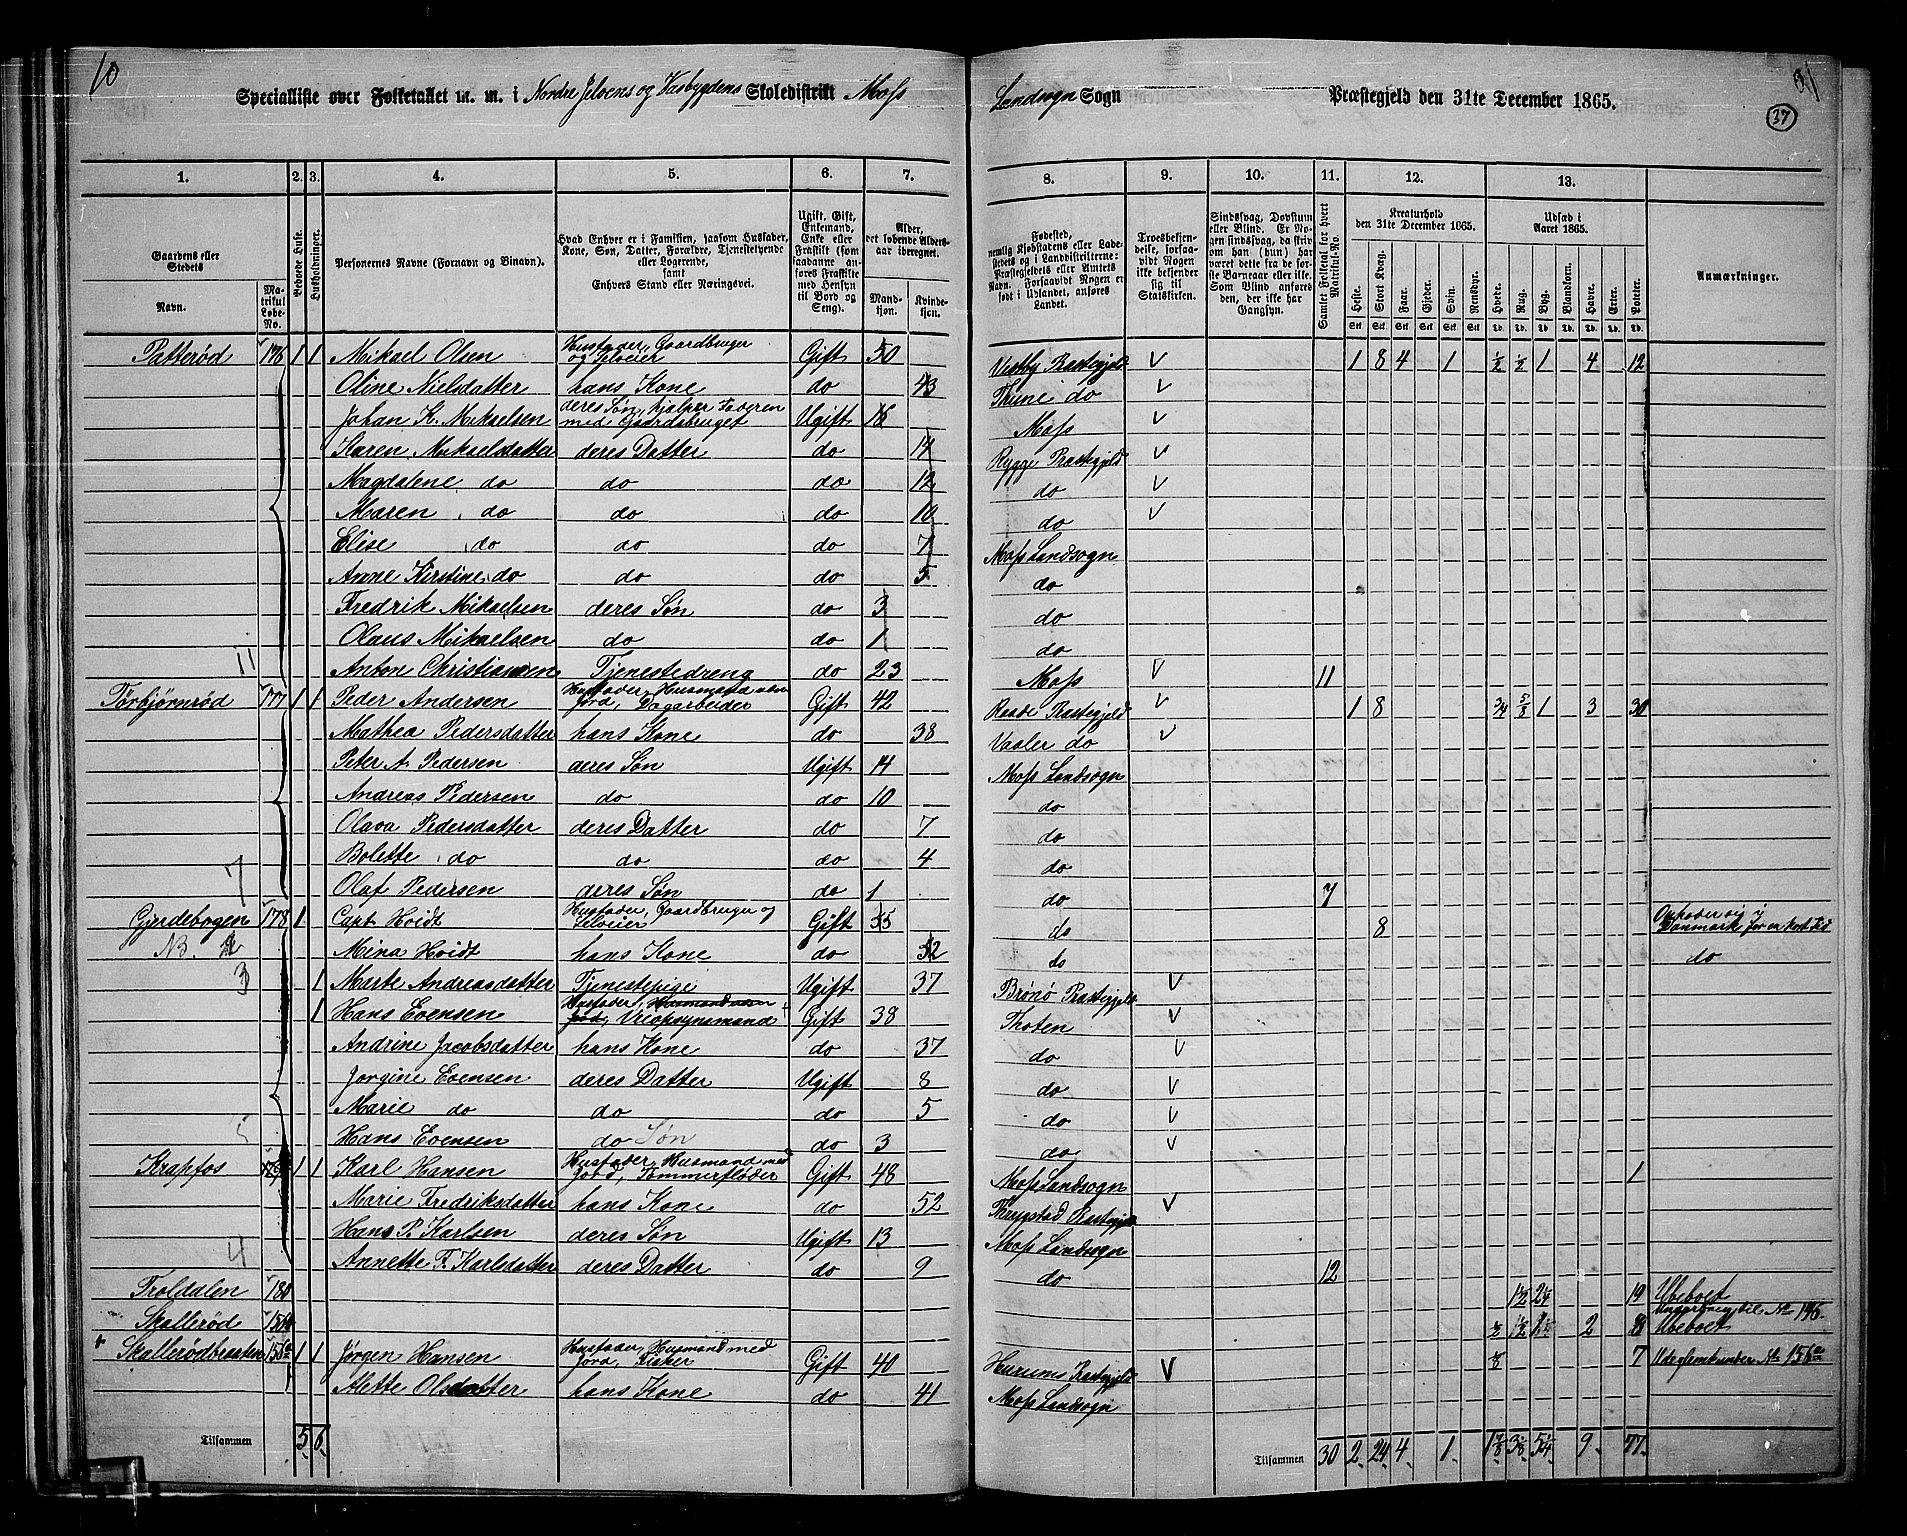 10
31
37
Specialliste over Folketallet m. m. i Nordre Jeløens og Vasbygdens Skoledistrikt Moss Landsogn Sogn Præstegjeld den 31te December 1865.
1. 2. 3. 4. 5. 6. 7. 8. 9. 10. 11. 12. 13.
Gaardens eller Stedets
Navn. Matrikul Løbe-No.
Beboede Huse.
Husholdninger.
Personernes Navne (Fornavn og Binavn).
Hvad Enhver er i Familien, saasom Husfader, Kone, Søn, Datter, Forældre, Tjenestetyende eller Logerende, samt Enhvers Stand eller Næringsvei.
Ugift, Gift, Enkemand, Enke eller Fraskilt (som saadanne anføres Fraskilte med Hensyn til Bord og Seng).
Alder, det løbende Aldersaar iberegnet.
Mandkjøn. Kvindekjøn.
Troesbekjendelse, forsaavidt Nogen ikke bekjender sig til Statskirken.
Sindssvag, Døvstum eller Blind. Er Nogen sindssvag, da skriv om han (hun) har været dette fra de første Barneaar eller ikke. Som Blind anføres den, der ikke har Gangsyn.
Samlet Folketal for hvert Matrikul-No.
Kreaturhold den 31te December 1865.
Heste. Stort Kvæg. Faar. Gjeder. Svin. Rensdyr.
Udsæd i Aaret 1865.
Hvede. Rug. Byg. Blandkorn. Havre. Erter. Poteter.
Anmærkninger.
Patterød 176 1 1 Mikael Olsen Husfader, Gaardbruger og Selveier Gift 50 Vestby Præstegjeld V 1 8 4 1 ½ ½ 1 4 12
Oline Nielsdatter hans Kone do 43 Thune do V
Johan K. Mikaelsen deres Søn, hjælper Faderen med Gaardsbruget Ugift 16 Moss V
Karen Mikaelsdatter deres Datter do 14 Rygge Præstegjeld V
Magdalene do do do 12 do V
Maren do do do 10 do V
Elise do do do 7 Moss Landsogn
Anne Kirstine do do do 5 do
Fredrik Mikaelsen deres Søn do 3 do
Olaus Mikaelsen do do 1 do
11 Anton Christiansen Tjenestedreng do 23 Moss V 11
Torbjørnrød 177 1 1 Peder Andersen Husfader, Husmand uden Jord, Dagarbeider Gift 42 Raade Præstegjeld V 1 8 ¾ ⅝ 1 3 30
Mathea Pedersdatter hans Kone do 38 Vaaler do V
Peter A. Pedersen deres Søn Ugift 14 Moss Landsogn
Andreas Pedersen do do 10 do
Olava Pedersdatter deres Datter do 7 do
Bolette do do do 4 do
7 Olaf Pedersen deres Søn do 1 do 7
Gjerdebogen 178 1 Capt Hoidt Husfader, Gaardbruger og Selveier Gift 35 do 8 Opholder sig i Danmark for en kort Tid
N3. Mina Hoidt hans Kone do 32 do do
3 1 Marte Andreasdatter Tjenestepige Ugift 37 Brønø Præstegjeld V
1 Hans Evensen Husfader, Husmand uden Jord, Opsynsmand Gift 38 Thoten V
Andrine Jacobsdatter hans Kone do 37 do V
Jorgine Evensen deres Datter Ugift 8 do V
Marie do do do 5 do V
5 Hans Evensen do Søn do 3 do V
Krapfos 179 1 1 Karl Hansen Husfader, Husmand med Jord, Tømmerfløder Gift 48 Moss Landsogn 1
Marie Fredriksdatter hans Kone do 52 Præstegjeld V
Hans P. Karlsen deres Søn Ugift 13 Moss Landsogn
4 Annette F. Karlsdatter deres Datter do 9 do 12
Troldalen 180 1½ 2¼ 19 Ubeboet
Skallerød 156 ½ 1½ 2 8 Ubeboet
Skallerødbraaten 156a 1 1 Jørgen Hansen Husfader, Husmand med Jord, Fisker Gift 40 Hurums Præstegjeld V ⅛ 7 No 156a
Alette Olsdatter hans Kone do 41 Moss Landsogn
Tilsammen 5 6 Tilsammen 30 2 24 4 1 1⅞ 3⅛ 5¼ 9 77